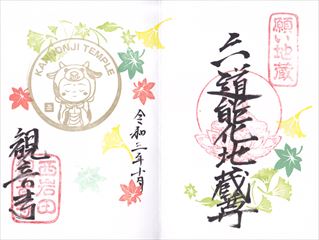 願い地蔵
六道能化地蔵尊
KANNONJI TEMPLE
令和三年十月
観音寺
西岩田